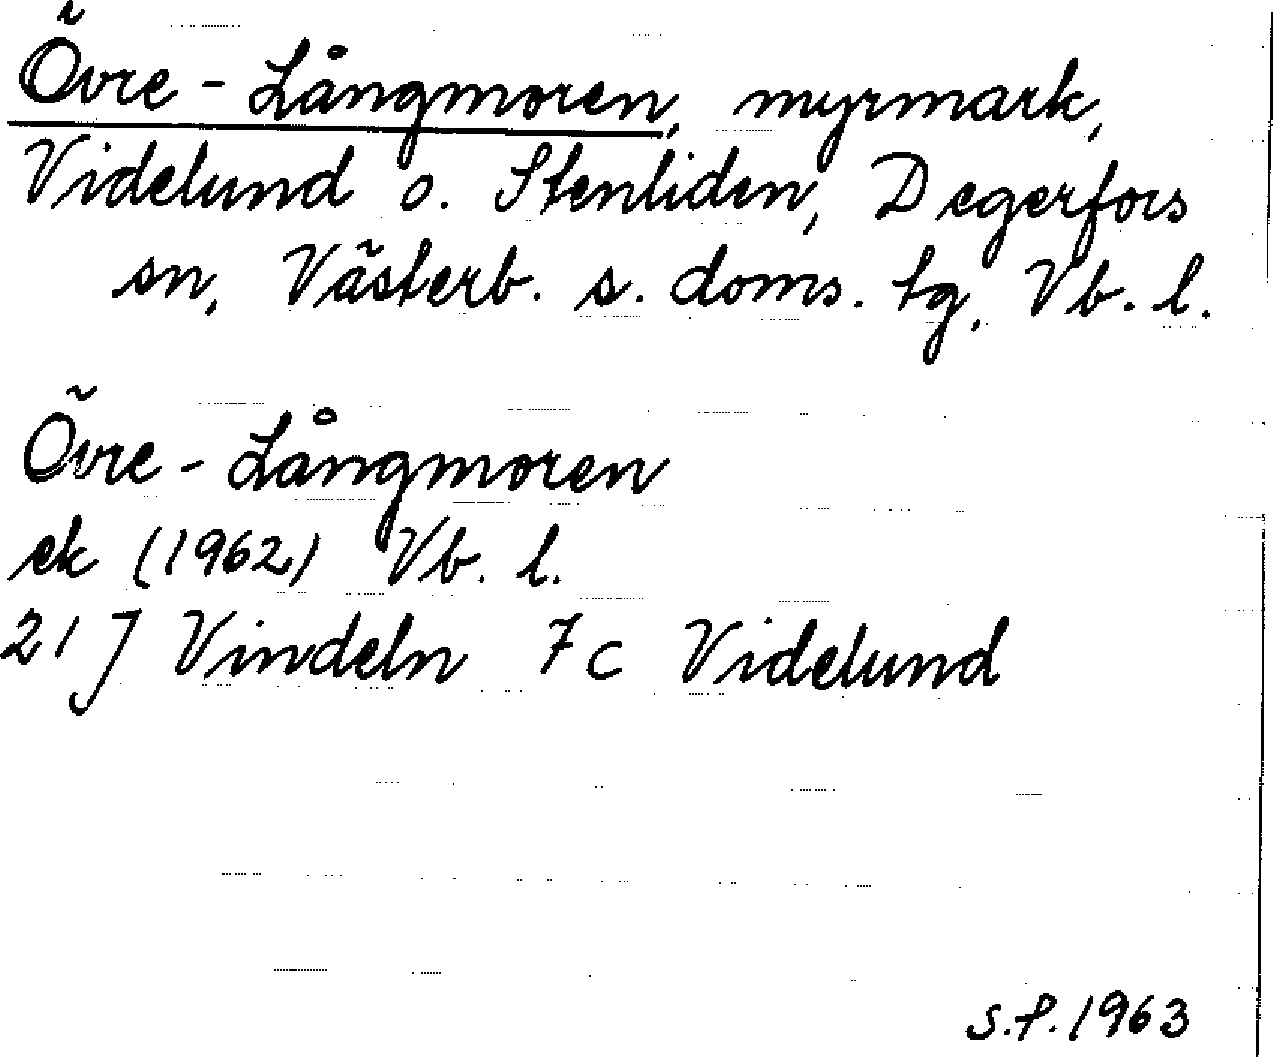 Övre-Långmoren, myrmark,
Videlund o. Stenliden, Degerfors
sn, Västerb. s. doms. tg, Vb. l.
Övre-Långmoren
ek (1962) Vb. l.
21 J Vindeln 7c Videlund
S.P. 1963